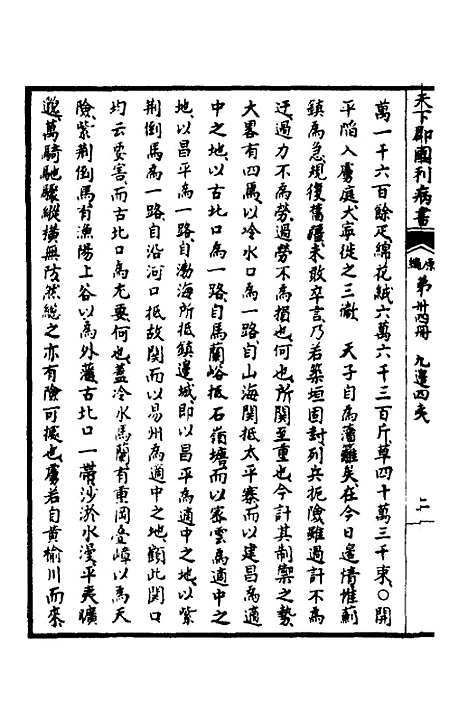 天下郡國利病書
原編 第卅四冊 九邊四夷
二
萬一千六百餘疋綿花絨六萬六千三百斤草四十萬三千束○開
平陷入虜庭大寧徙之三衛　天子自為藩籬矣在今日邊情惟薊
鎮為急規復舊疆未敢卒言乃若築垣固封列兵扼險雖過計不為
迂過力不為勞過勞不為損也何也所關至重也今計其制禦之勢
大畧有四焉以冷水口為一路自山海關抵太平寨而以建昌為適
中之地以古北口為一路自馬蘭峪抵石嶺塘而以密雲為適中之
地以昌平為一路自渤海所抵鎮邊城即以昌平為適中之地以紫
荆倒馬為一路自沿河口抵故関而以易州為適中之地顧此関口
均云要害而古北口為尤要何也蓋冷水馬蘭有重岡叠嶂以為天
險紫荆倒馬有漁陽上谷以為外藩古北口一帶沙淤水漫平夷曠
邈萬騎馳驟縱橫無防然總之亦有險可據也虜若自黄榆川而來